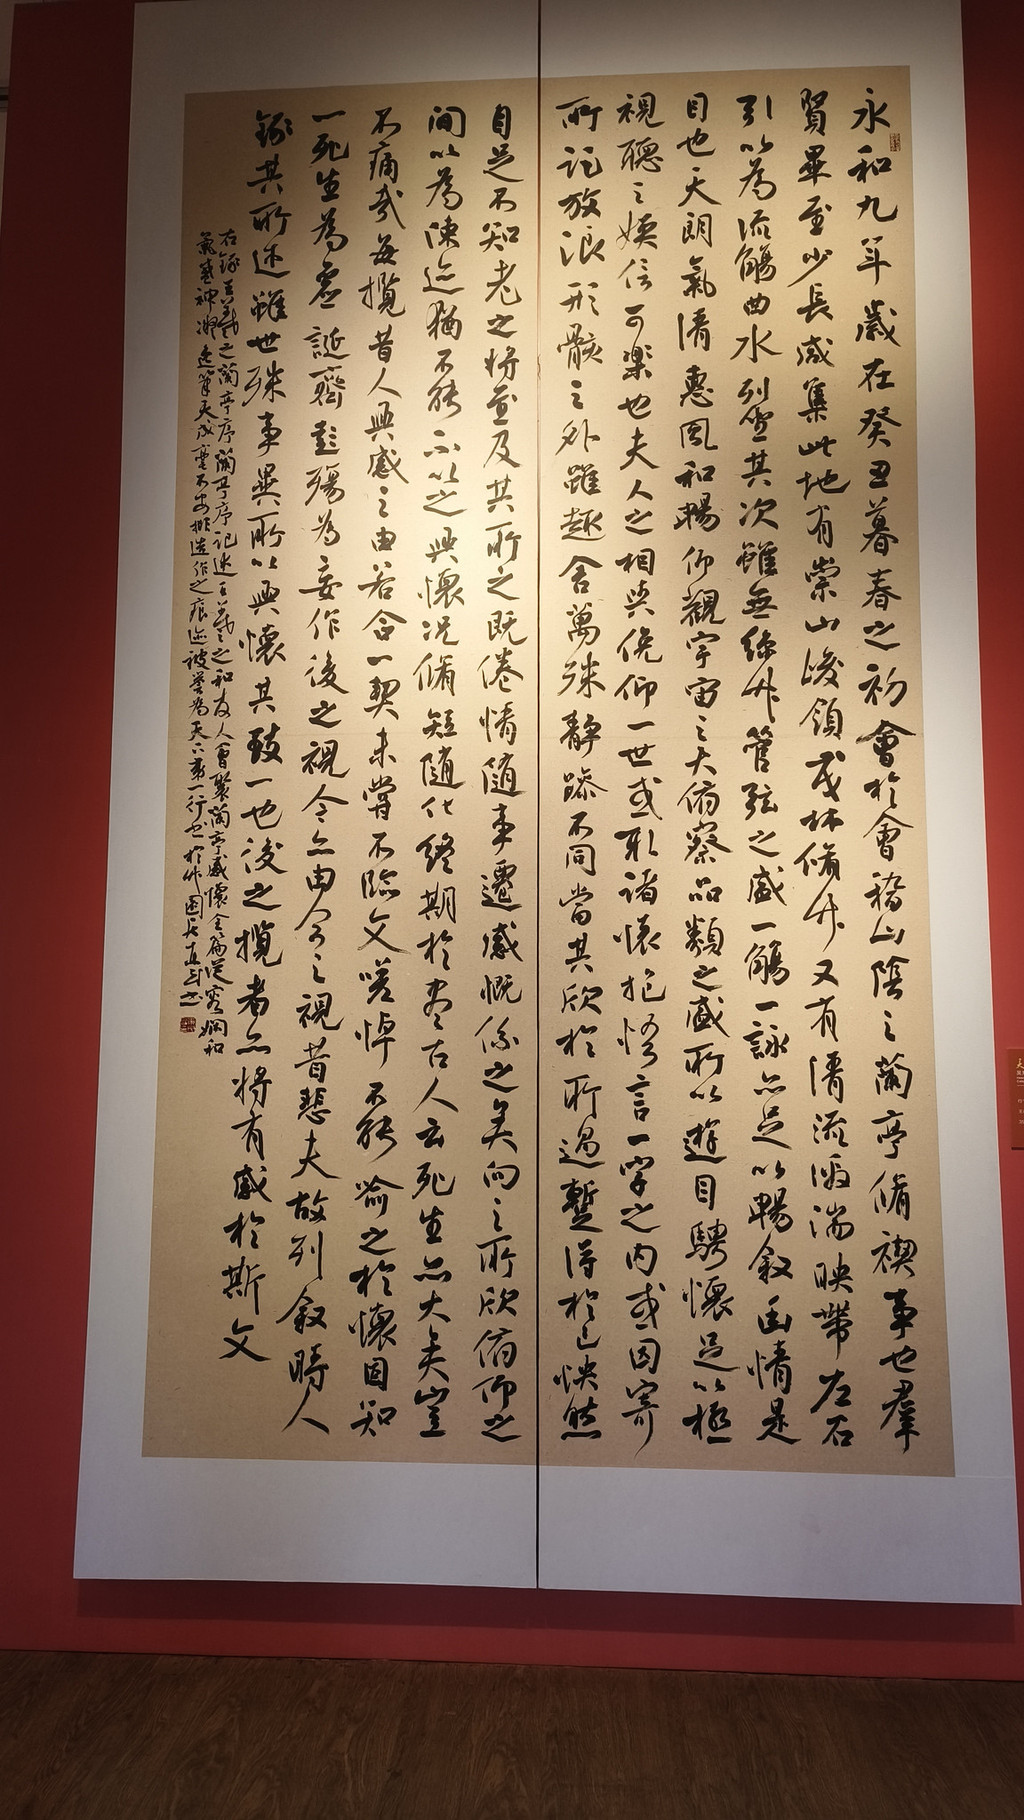 永和九年歲在癸丑暮春之初會於會稽山陰之蘭亭脩禊事也羣
賢畢至少長咸集此地有崇山峻領茂林脩竹又有清流激湍映帶左右
引以為流觴曲水列坐其次雖無絲竹管弦之盛一觴一詠亦足以暢敘幽情是
日也天朗氣清惠風和暢仰觀宇宙之大俯察品類之盛所以遊目騁懷足以極
視聽之娛信可樂也夫人之相與俛仰一世或取諸懷抱悟言一室之內或因寄
所託放浪形骸之外雖趣舍萬殊靜躁不同當其欣於所遇蹔得於己怏然
自足不知老之將至及其所之既倦情隨事遷感慨係之矣向之所欣俯仰之
間以為陳迹猶不能不以之興懷況脩短隨化終期於盡古人云死生亦大矣豈
不痛哉每攬昔人興感之由若合一契未嘗不臨文嗟悼不能喻之於懷固知
一死生為虛誕齊彭殤為妄作後之視今亦由今之視昔悲夫故列敘時人
錄其所述雖世殊事異所以興懷其致一也後之攬者亦將有感於斯文
右錄王羲之蘭亭序蘭亭序記述王羲之和友人會聚蘭亭感懷全篇從容嫻和
氣盛神凝逸筆天成毫不安排造作之痕迹被譽為天下第一行書於竹園